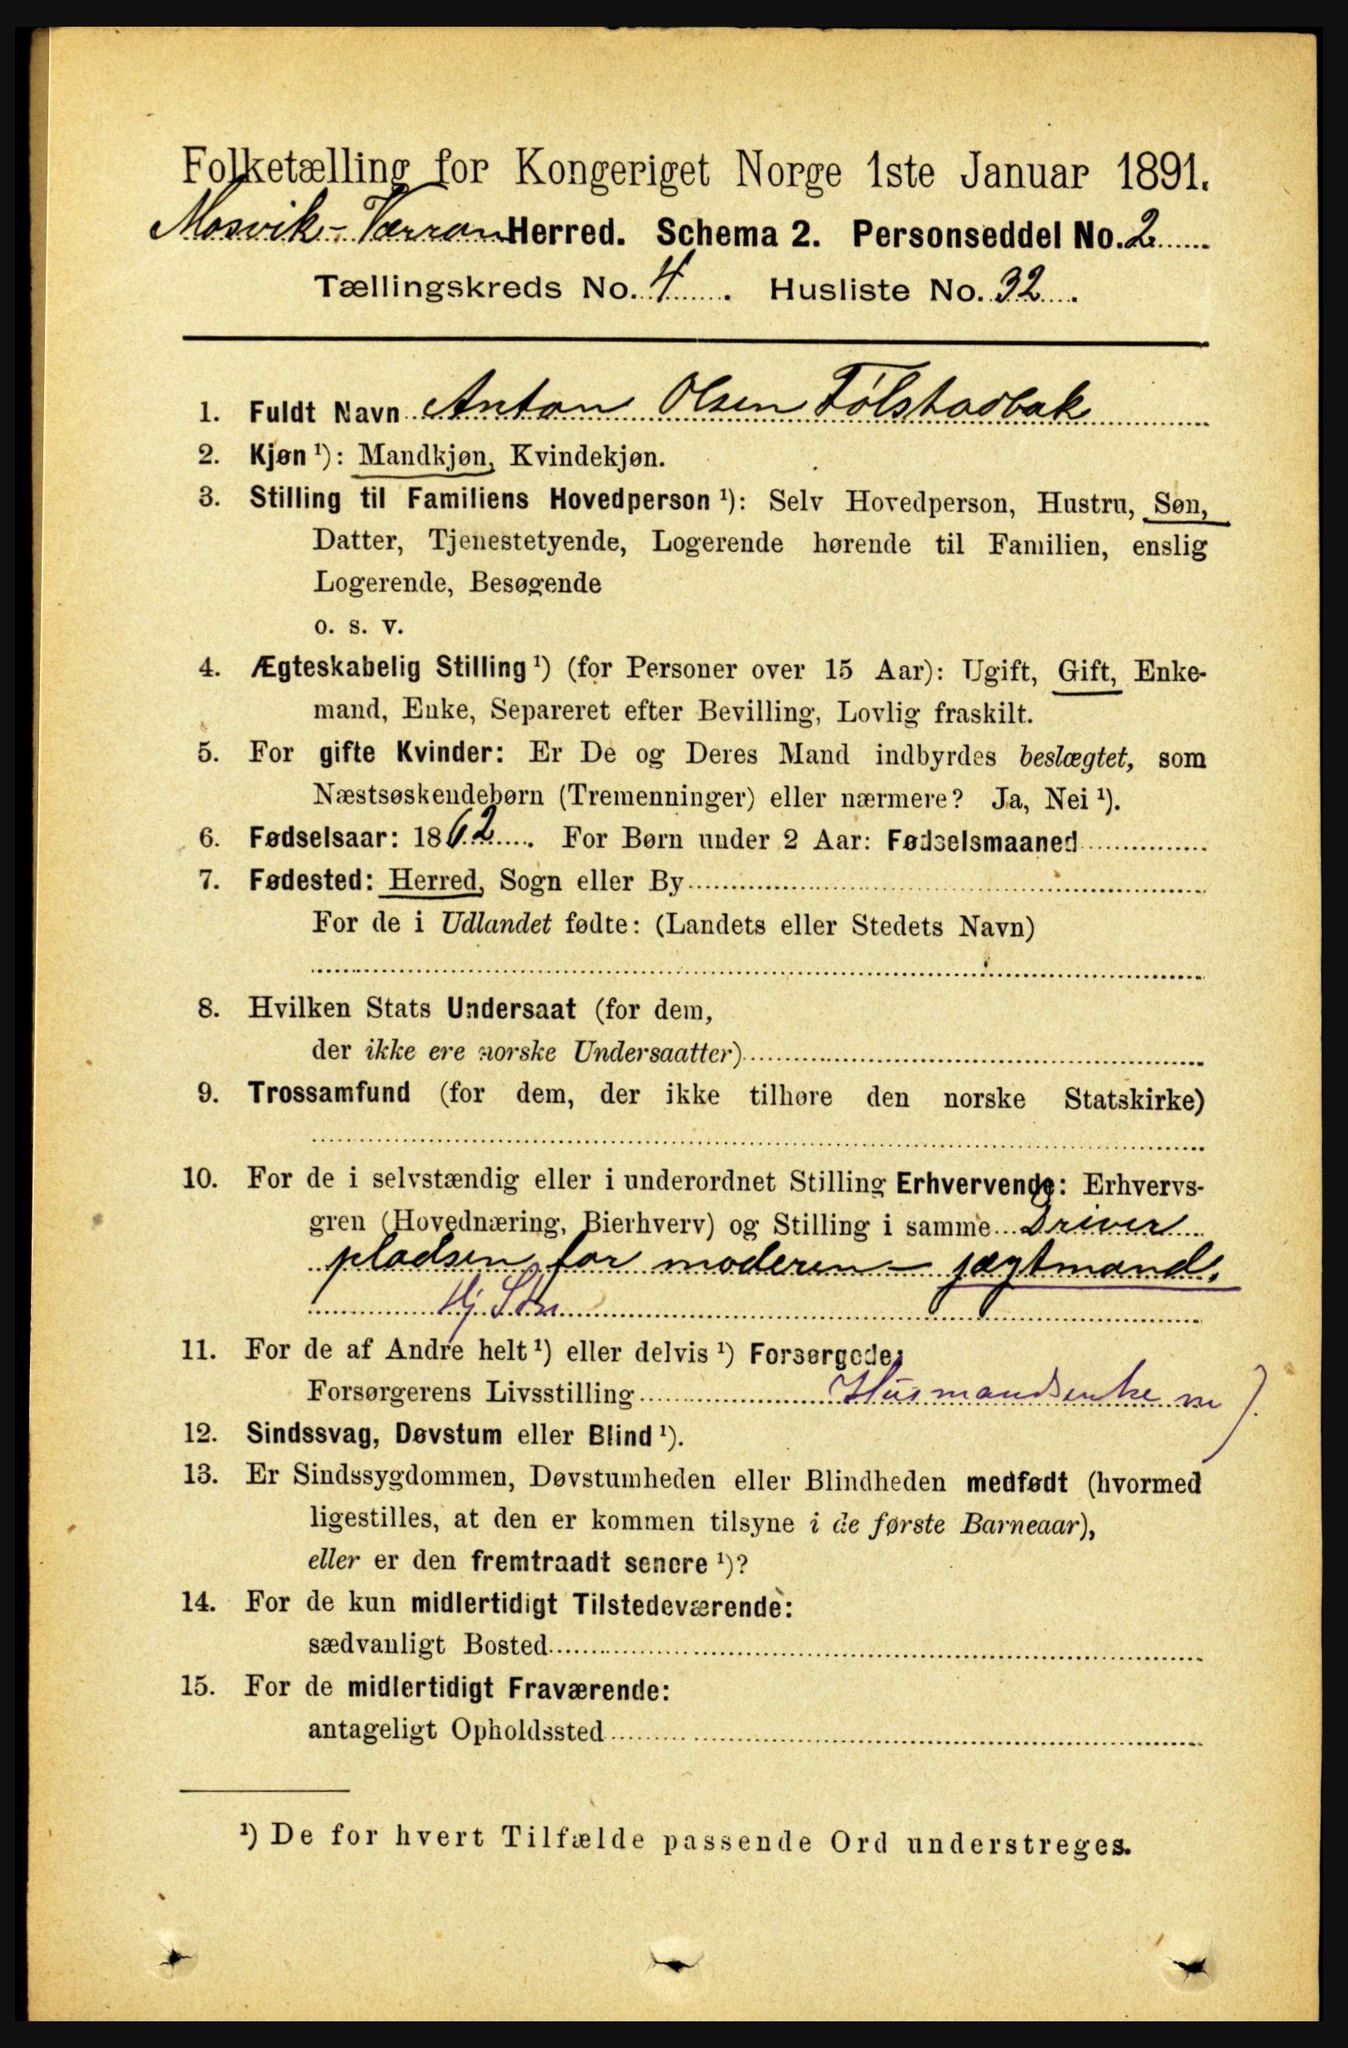 Folketælling for Kongeriget Norge 1ste Januar 1891.
Mosvik-Værran Herred. Schema 2. Personseddel No. 2
Tællingskreds No. 4. Husliste No. 32.
1. Fuldt Navn Anton Olsen Følstadbak
2. Kjøn ¹): Mandkjøn, Kvindekjøn.
3. Stilling til Familiens Hovedperson ¹): Selv Hovedperson, Hustru, Søn,
Datter, Tjenestetyende, Logerende hørende til Familien, enslig
Logerende, Besøgende
o. s. v.
4. Ægteskabelig Stilling ¹) (for Personer over 15 Aar): Ugift, Gift, Enke-
mand, Enke, Separeret efter Bevilling, Lovlig fraskilt.
5. For gifte Kvinder: Er De og Deres Mand indbyrdes beslægtet, som
Næstsøskendebørn (Tremenninger) eller nærmere? Ja, Nei ¹).
6. Fødselsaar: 1862. For Børn under 2 Aar: Fødselsmaaned
7. Fødested: Herred, Sogn eller By
For de i Udlandet fødte: (Landets eller Stedets Navn)
8. Hvilken Stats Undersaat (for dem,
der ikke ere norske Undersaatter)
9. Trossamfund (for dem, der ikke tilhøre den norske Statskirke)
10. For de i selvstændig eller i underordnet Stilling Erhvervende: Erhvervs-
gren (Hovednæring, Bierhverv) og Stilling i samme Driver
pladsen for moderen - jægtmand.
Hj
11. For de af Andre helt ¹) eller delvis ¹) Forsørgede:
Forsørgerens Livsstilling Husmandsenke m).
12. Sindssvag, Døvstum eller Blind ¹).
13. Er Sindssygdommen, Døvstumheden eller Blindheden medfødt (hvormed
ligestilles, at den er kommen tilsyne i de første Barneaar),
eller er den fremtraadt senere ¹)?
14. For de kun midlertidigt Tilstedeværende:
sædvanligt Bosted
15. For de midlertidigt Fraværende:
antageligt Opholdssted
¹) De for hvert Tilfælde passende Ord understreges.